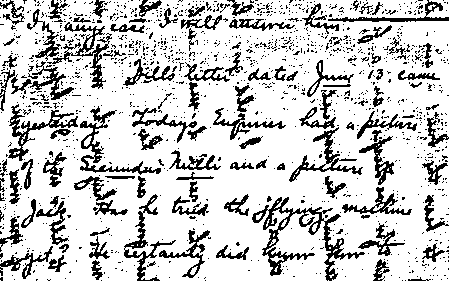 In any case, I will answer him.
Bill's letter dated June 13, came
yesterday. Today's Enquirer had a picture
of the Secundus Nulli and a picture of
Jack. Has he tried the flying machine
yet? He certainly did know how to